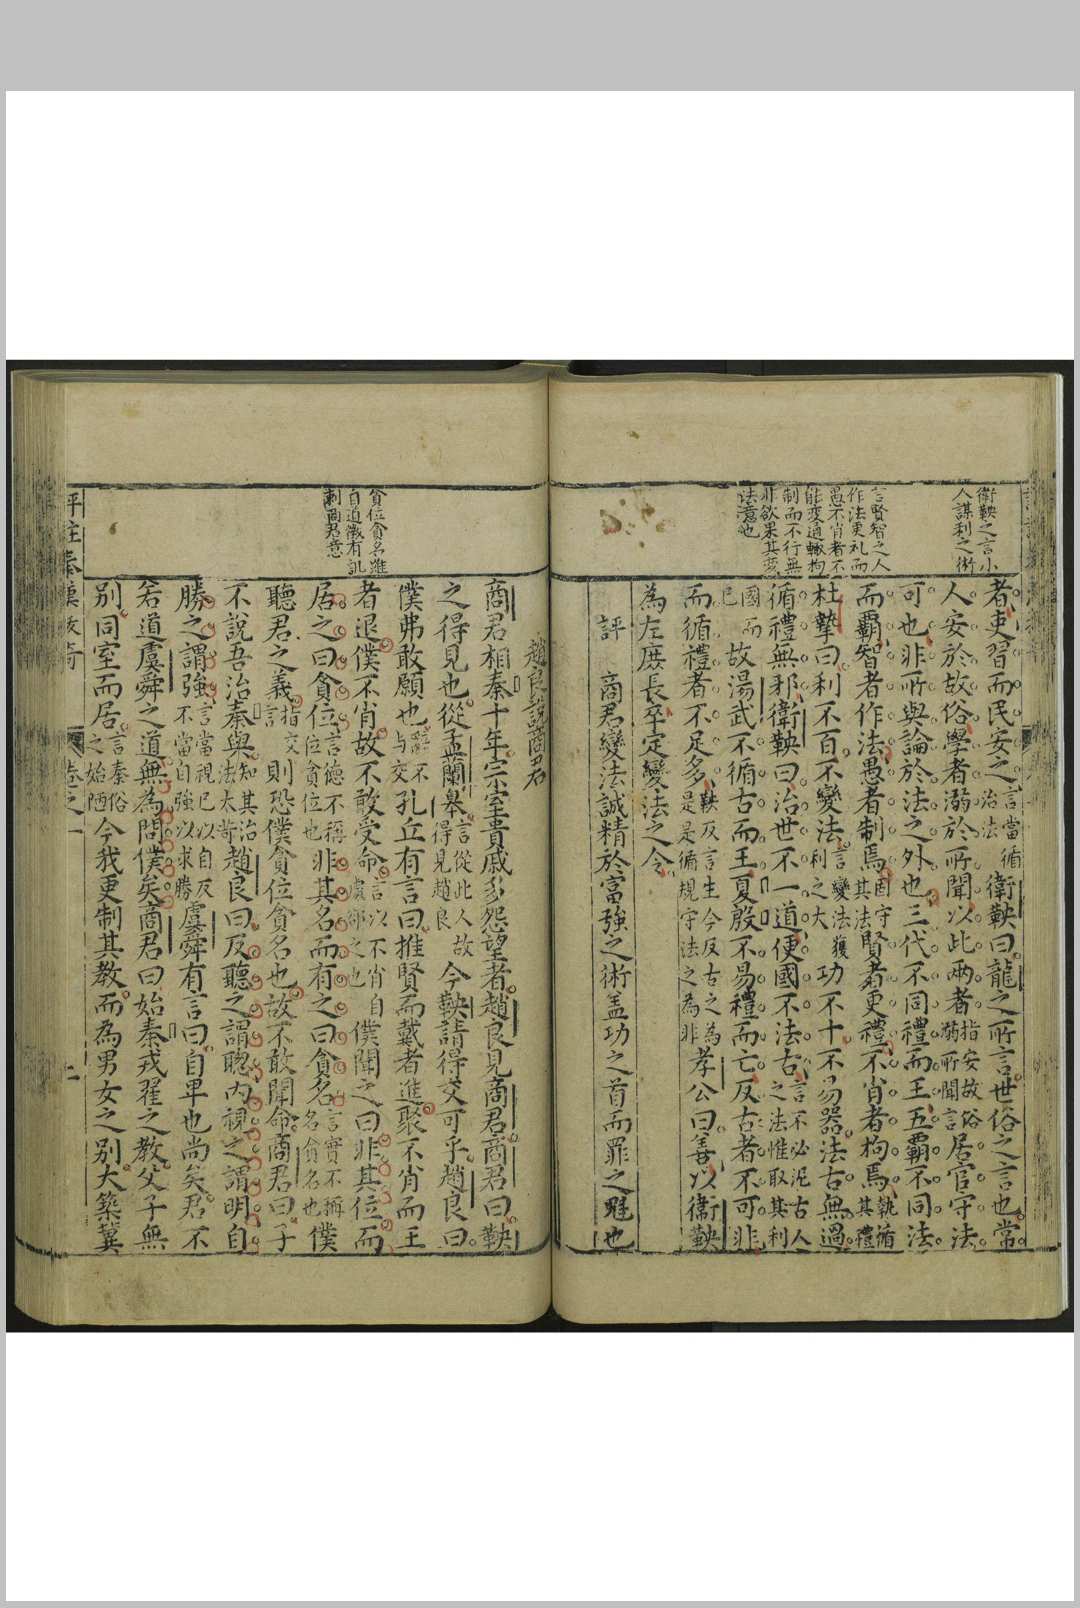 衛鞅之言小
人謀利之術
言賢智之人
作法更礼而
愚不肖者不
能变通輙拘
制而不行無
非欲果其变
法意也
者吏習而民安之言當循治法衛鞅曰龍之所言世俗之言也常
人安於故俗學者溺於所聞以此兩者指安故俗猶所聞言居官守法
可也非所與論於法之外也三代不同禮而王五霸不同法
而霸智者作法愚者制焉固守其法賢者更禮不肖者拘焉執循其禮
杜摯曰利不百不變法言變法獲利之大功不十不易器法古無過
循禮無邪衛鞅曰治世不一道便國不法古言不必泥古人之法惟取其利
國而已故湯武不循古而王夏殷不易禮而亡反古者不可非
而循禮者不足多鞅反言生今反古之為是是循規守法之為非孝公曰善以衛鞅
為左庶長卒定變法之令
評　商君變法誠精於富強之術盖功之首而罪之魁也
貪位貪名雖
自道微有訊
刺商君意
趙良說商君
商君相秦十年宗室貴戚多怨望者趙良見商君商君曰鞅
之得見也從孟蘭臯言從此人故得見趙良今鞅請得交可乎趙良曰
僕弗敢願也辭不与交孔丘有言曰推賢而戴者進聚不肖而王
者退僕不肖故不敢受命言以不肖自處郤之也僕聞之曰非其位而
居之曰貪位言德不稱位貪位也非其名而有之曰貪名言實不稱名貪名也僕
聽君之義指交言則恐僕貪位貪名也故不敢聞命商君曰子
不說吾治秦與知其治法大苛趙良曰反聽之謂聰內視之謂明自
勝之謂強言當視已以自反不當自強以求勝虞舜有言曰自卑也尚矣君不
若道虞舜之道無為問僕矣商君曰始秦戎翟之教父子無
別同室而居言秦俗之始陋今我更制其教而為男女之別大築冀